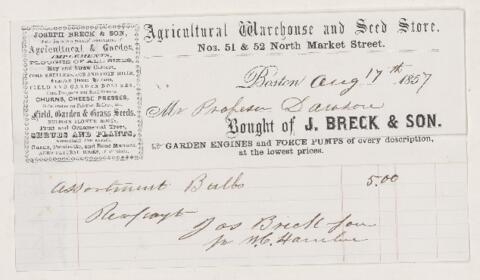 JOSEPH BRECK & SON,
Agricultural & Garden
IMPLEMENTS,
PLOUGHS OF ALL SIZES,
Hay and Straw Cutters,
FIELD AND GARDEN ROLLERS,
CHURNS, CHEESE PRESSES,
Field, Garden & Grass Seeds,
Fruit and Ornamental Trees,
SHRUBS AND PLANTS,
Agricultural Warehouse and Seed Store.
Nos. 51 & 52 North Market Street.
Boston Aug 17th 1857
Mr Professor
Bought of J. BRECK & SON.
GARDEN ENGINES and FORCE PUMPS of every description,
at the lowest prices.
Assortment Bulbs 5.00
Jos Breck Son
W.C.